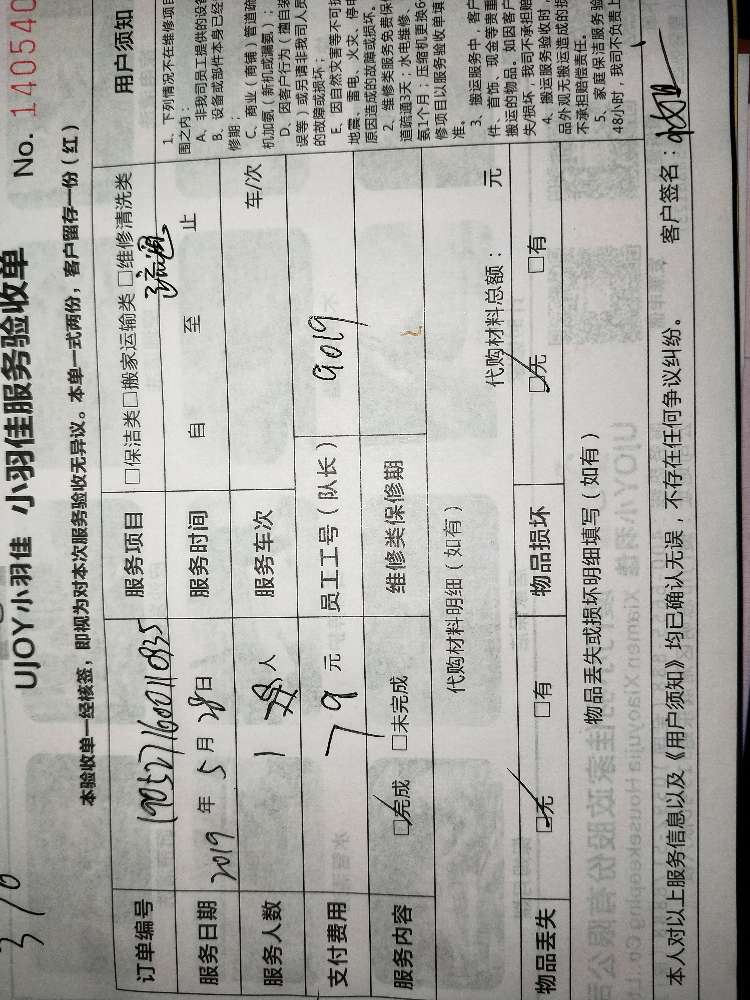 370
UJOY小羽佳 小羽佳服务验收单 No. 140540
本验收单一经核签，即视为对本次服务验收无异议。本单一式两份，客户留存一份（红）
订单编号 19052716000110835 服务项目 □保洁类□搬家运输类 □维修清洗类
疏通
服务日期 2019年5月28日 服务时间 自 至 止
服务人数 1 人 服务车次 车/次
支付费用 79元 员工工号（队长） 9019
服务内容 ☑完成 □未完成 维修类保修期
代购材料明细（如有） 代购材料总额： 元
物品丢失 ☑无 □有 物品损坏 ☑无 □有
物品丢失或损坏明细填写（如有）
本人对以上服务信息以及《用户须知》均已确认无误，不存在任何争议纠纷。 客户签名：
用户须知
1、下列情况不在维修项目
围之内：
A、非我司员工提供的设备
B、设备或部件本身已经
修期；
C、商业（商铺）管道疏
机加氨（新机或漏氨）；
D、因客户行为（擅自装
误等）或另请非我司人员
的故障或损坏；
E、因自然灾害等不可抗
地震、雷电、火灾、停电
原因造成的故障或损坏。
2、维修类服务免费保
道疏通3天；水电维修、
氨1个月；压缩机更换6
修项目以服务验收单填
准。
3、搬运服务中，客户
件、首饰、现金等贵重
搬运的物品。如因客户
失/损坏，我司不承担赔
4、搬运服务验收时，
品外观无搬运造成的损
不承担赔偿责任。
5、家庭保洁服务验
48小时，我司不负责上